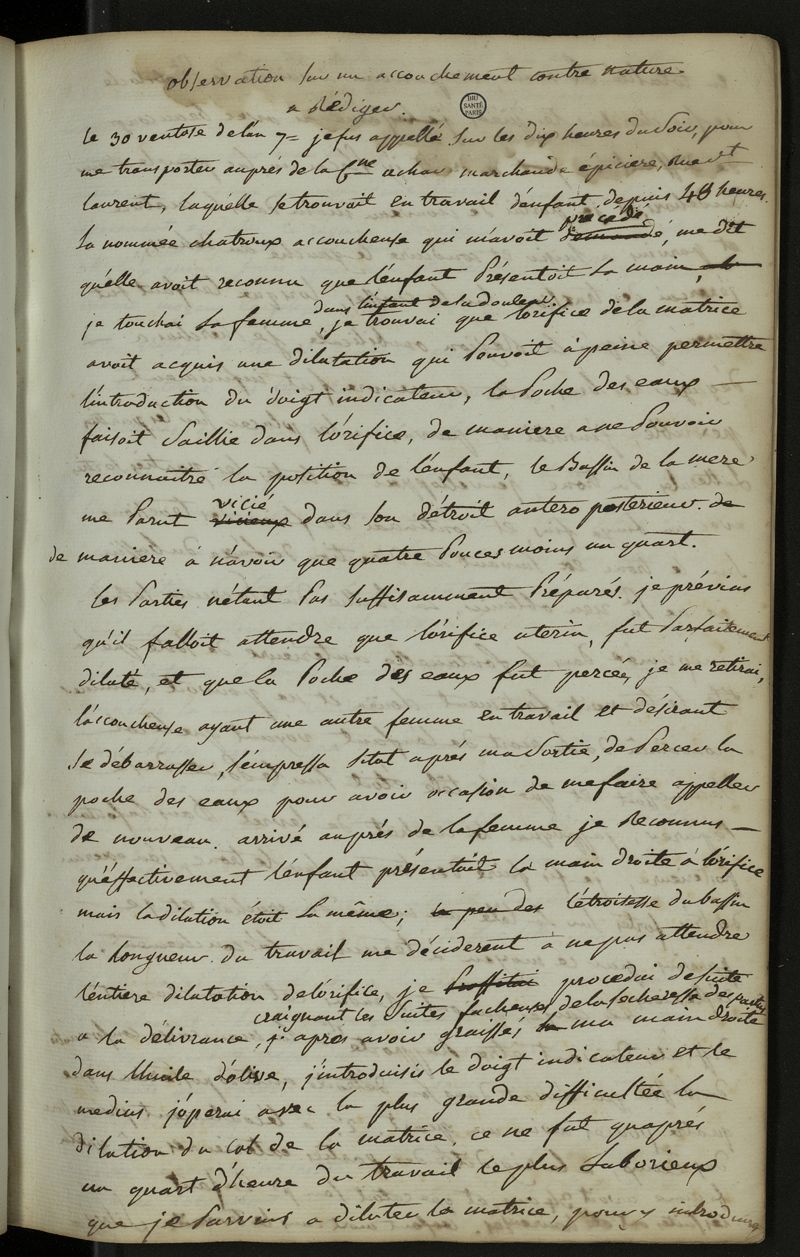 observation sur un accouchement contre nature
a Rédiger.
BIU
SANTÉ
PARIS
le 30 ventose de l'an 7= je fus appellé sur les dix heures du soir, pour
me transporter auprés de la Cne achar marchande épiciere, Rue st
laurent, laquélle se trouvait en travail dénfant depuis 48 heures.
la nommée chatroux accoucheuse qui m'avoit précédé, me dit
qu'élle avoit reconnu que l'énfant Présentoit la main,
dans l'instant de la douleur
je touchai la femme, je trouvai que l'orifice de la matrice
avoit acquis une dilatation qui Pouvoit à peine permettre
l'introduction du doigt indicateur, la Poche des eaux
faisoit Saillie dans l'orifice, de maniere a ne Pouvoir
reconnaitre la position de l'énfant, le Bassin de la mere
me Parut vicié dans son détroit antero posterieur. de
de maniere à n'avoir que quatre Pouces moins un quart.
les Parties n'étant Pas suffisamment Préparés. je prévins
qu'il falloit attendre que l'orifice uterin, fut Parfaitement
dilaté, et que la Poche des eaux fut percée, je me retirai,
l'áccoucheuse ayant une autre femme en travail et désirant
se débarrasser, s'émpressa sitot aprés ma sortie, de Percer la
poche des eaux pour avoir occasion de me faire appeller
de nouveau. arrivé auprés de la femme je Reconnus
qu'éffactivement l'énfant présentoit la main droite à l'orifice
mais la dilation étoit la même; la peu des l'étroitesse du bassin
la longueur du travail me déciderent à ne pas attendre
l'éntiere dilatation de l'orifice, je procedai de suite
craignant les suites facheuses de la secheresse des parties
a la délivrance, j' apres avoir graissés ma main droite
dans l'huile d'olive, j'introduisis le doigt indicateur et le
medius j'opérai avec la plus grande difficultée la
dilation du col de la matrice. ce ne fut qu'aprés
un quart d'heure du travail le plus Laborieux
que je Parvins a dilater la matrice, pour y introduire